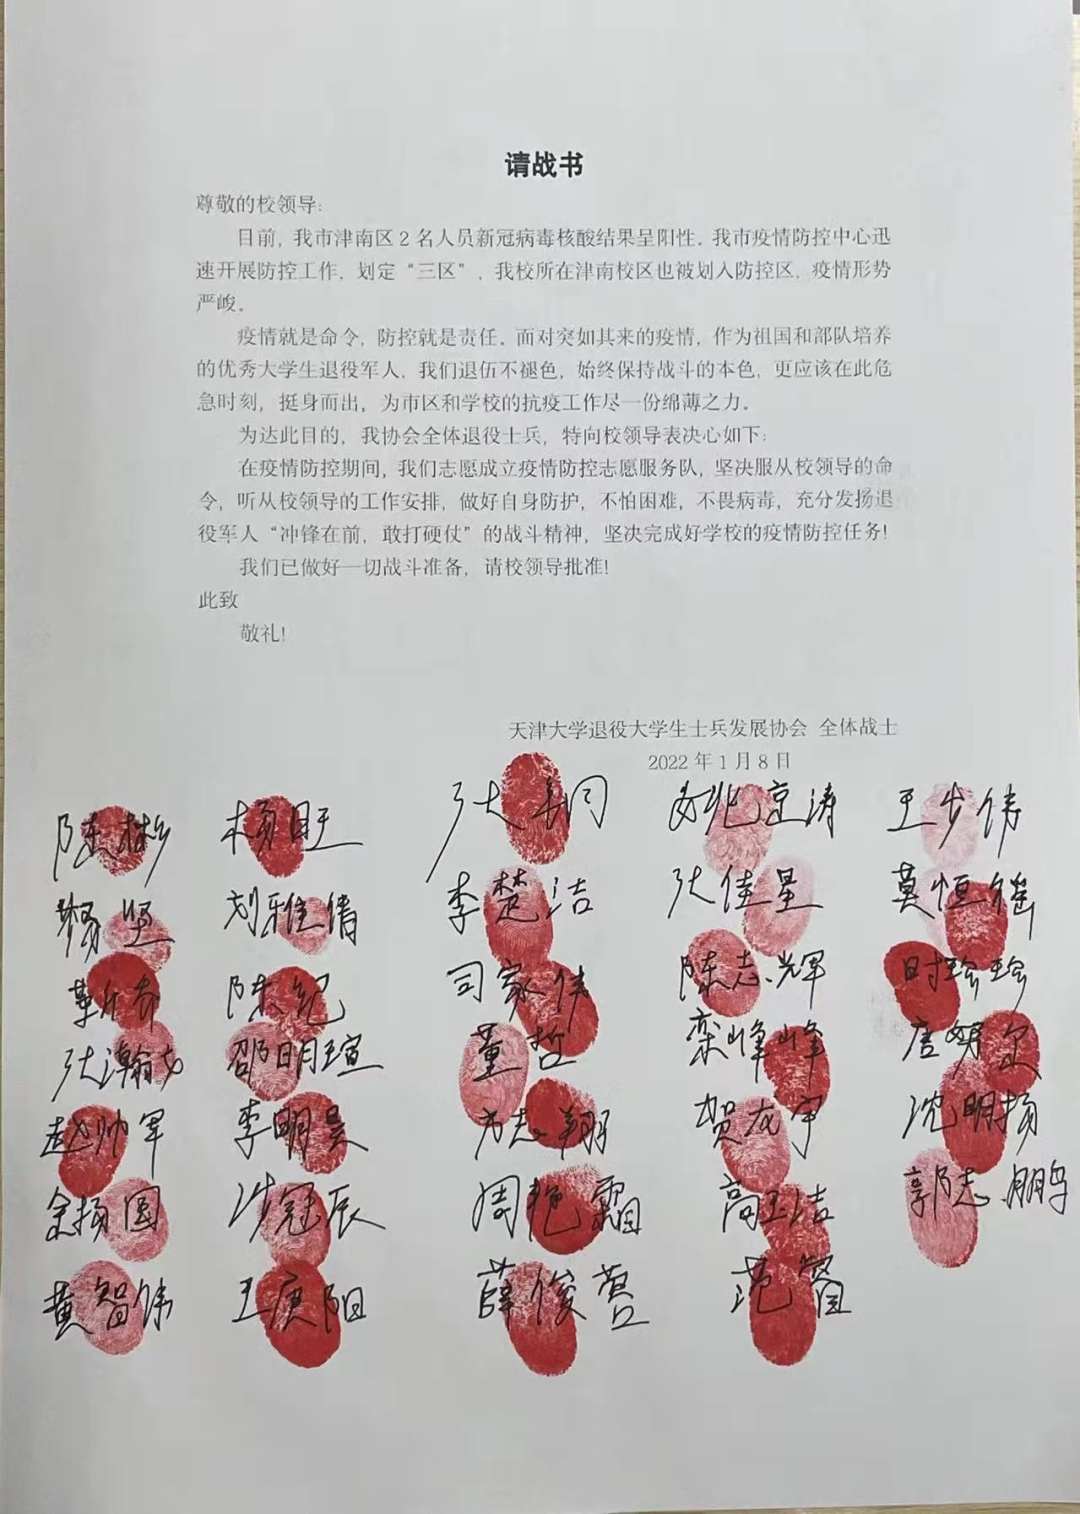 请战书
尊敬的校领导：
目前，我市津南区2名人员新冠病毒核酸结果呈阳性。我市疫情防控中心迅
速开展防控工作，划定“三区”，我校所在津南校区也被划入防控区，疫情形势
严峻。
疫情就是命令，防控就是责任。面对突如其来的疫情，作为祖国和部队培养
的优秀大学生退役军人，我们退伍不褪色，始终保持战斗的本色，更应该在此危
急时刻，挺身而出，为市区和学校的抗疫工作尽一份绵薄之力。
为达此目的，我协会全体退役士兵，特向校领导表决心如下：
在疫情防控期间，我们志愿成立疫情防控志愿服务队，坚决服从校领导的命
令，听从校领导的工作安排，做好自身防护，不怕困难，不畏病毒，充分发扬退
役军人“冲锋在前，敢打硬仗”的战斗精神，坚决完成好学校的疫情防控任务！
我们已做好一切战斗准备，请校领导批准！
此致
敬礼！
天津大学退役大学生士兵发展协会 全体战士
2022年1月8日
陈彬 杨旺 王步伟
杨坚 刘雅倩 李楚洁 张佳星 莫恒鑫
陈纪 司家伟 陈志辉 时珍珍
邵明瑄 董哲 栾峰峰
赵帅军 李明昊 贺龙宇 沈明扬
余扬圆 涉冠辰 周艳霜 高玉洁 郭志鹏
黄智伟 王庚阳 薛俊营